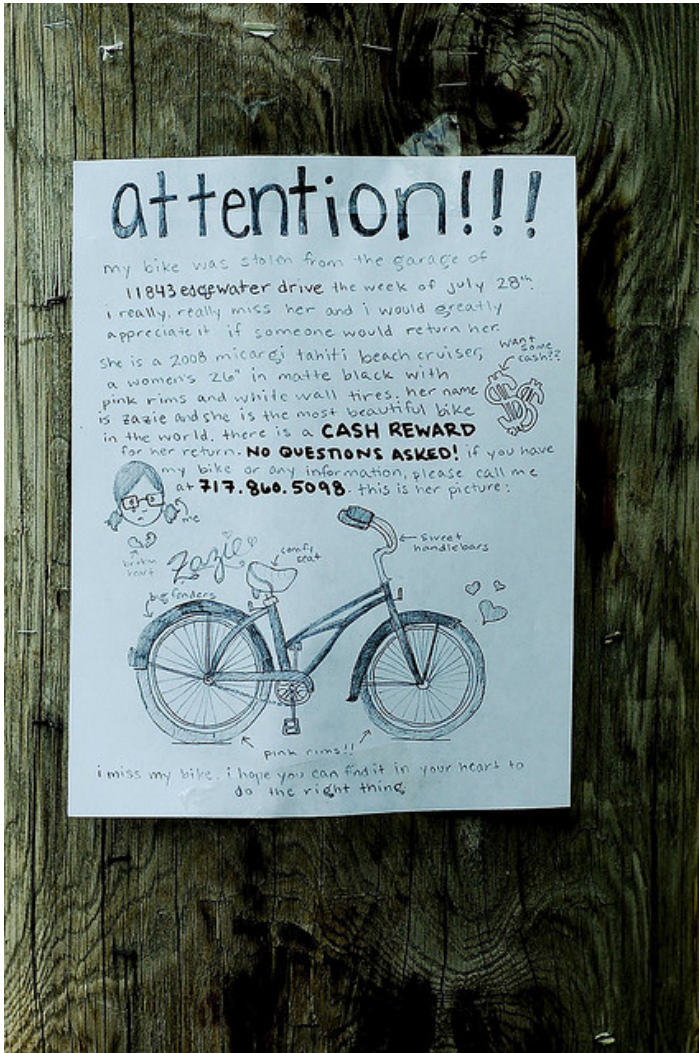 attention!!!
my bike was stolen from the garage of
11843 edgewater drive the week of july 28th.
i really, really miss her and i would greatly
appreciate it if someone would return her.
she is a 2008 micargi tahiti beach cruiser,
a women's 26" in matte black with
pink rims and white wall tires. her name
is zazie and she is the most beautiful bike
in the world. there is a CASH REWARD
for her return. NO QUESTIONS ASKED! if you have
my bike or any information, please call me
at 717.860.5098. this is her picture:
want
some
cash??
$
me
broken
heart
Zazie
comfy
seat
sweet
handlebars
big fenders
pink rims!!
i miss my bike. i hope you can find it in your heart to
do the right thing